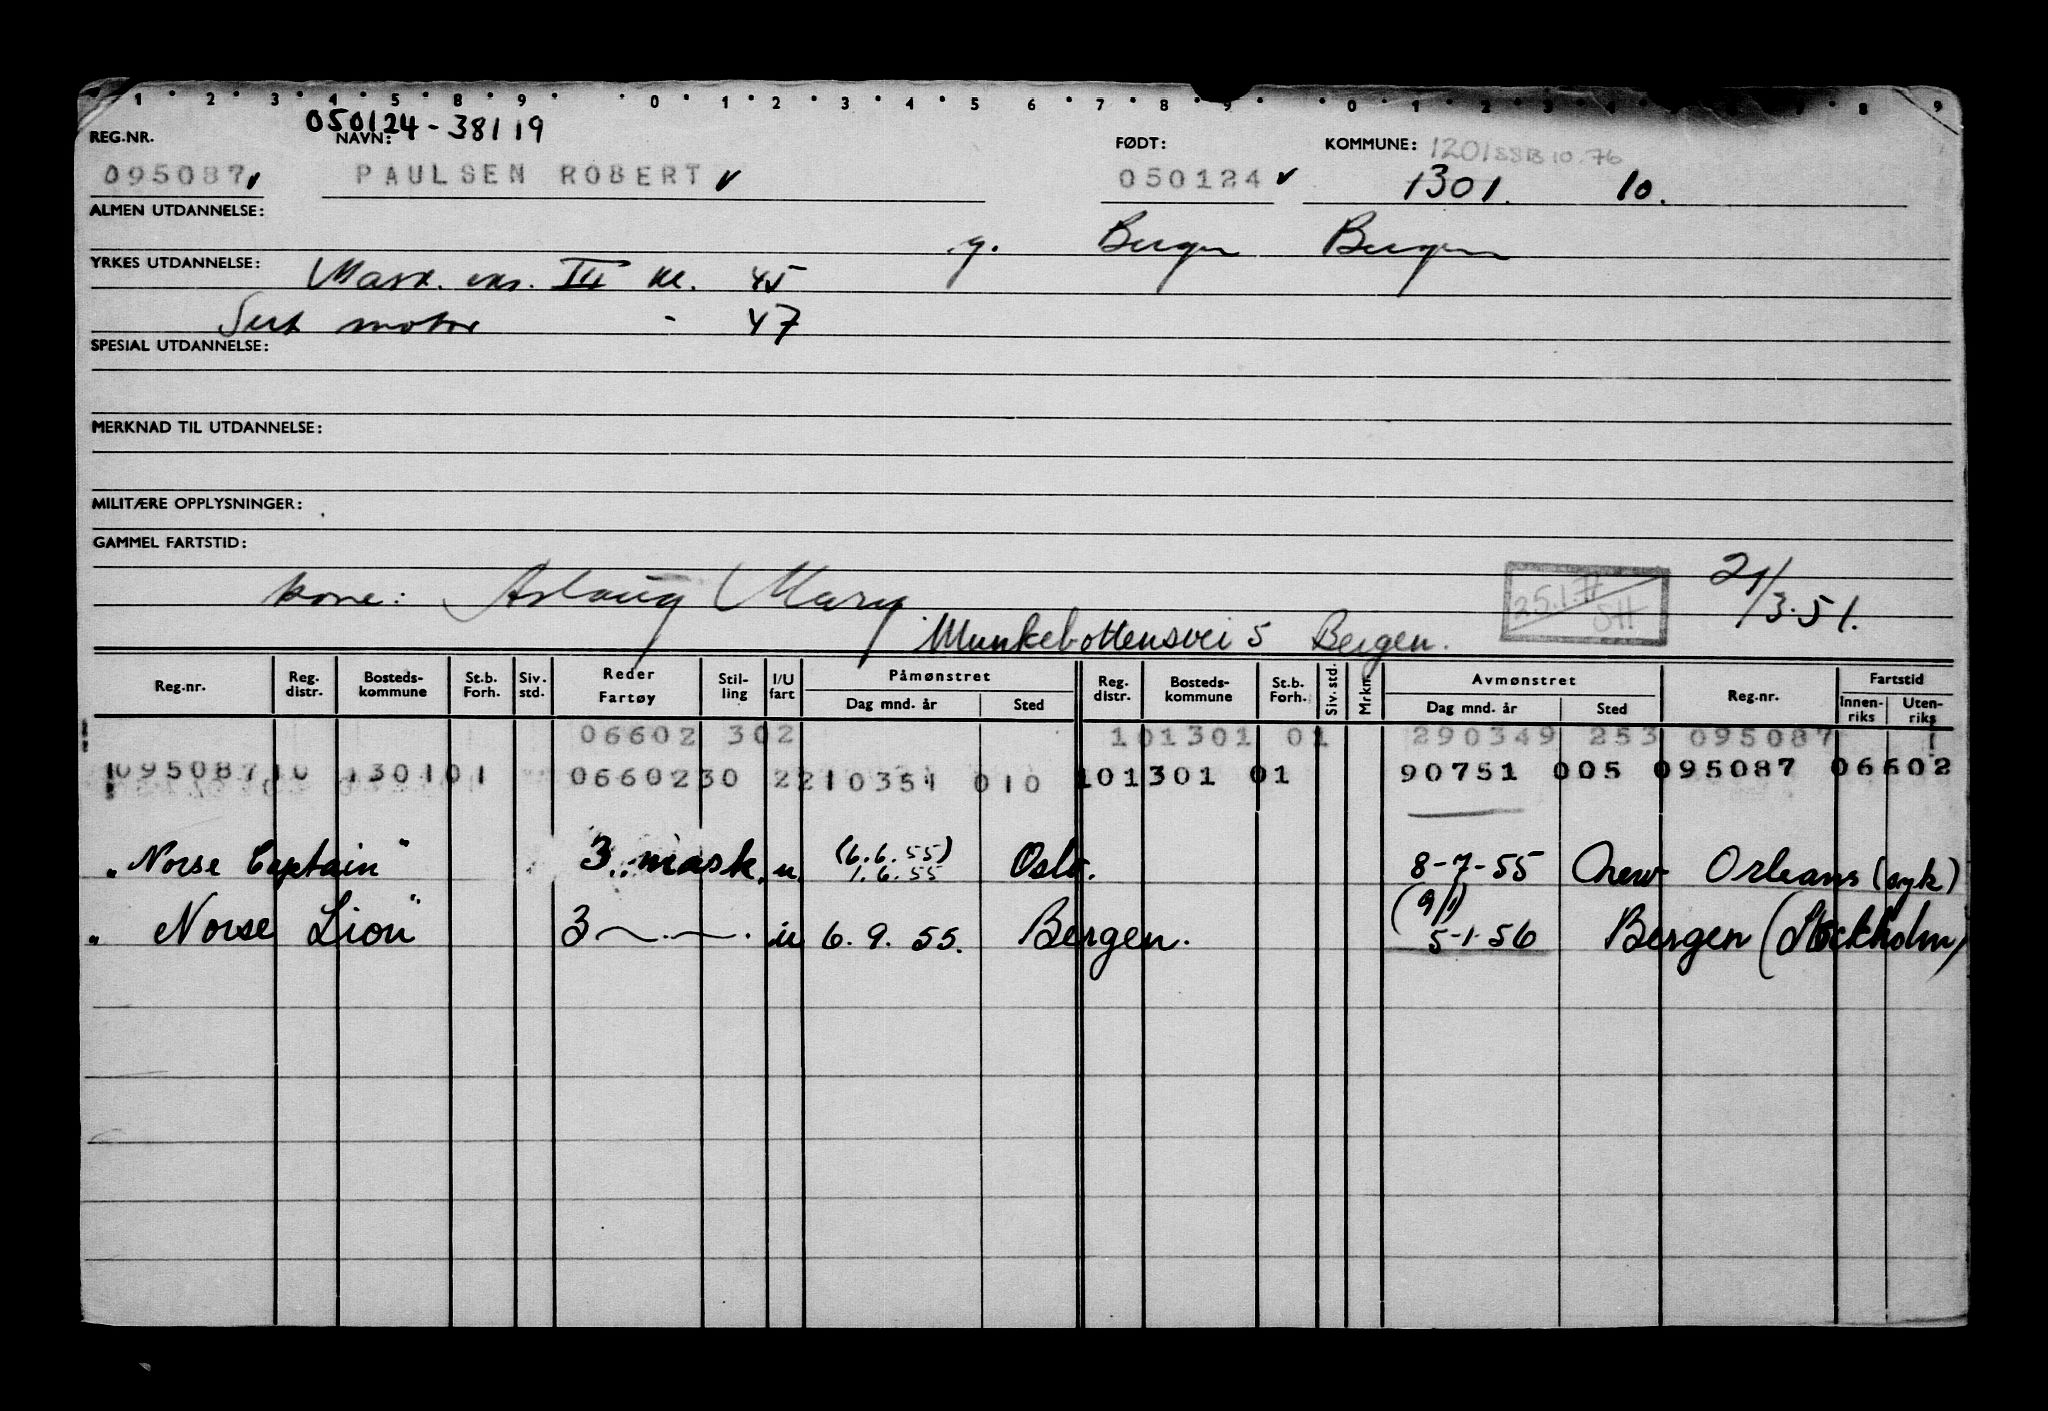 1 2 3 4 5 8 9 0 1 2 3 4 5 6 7 8 9 0 1 2 3 4 7 8 9
050124-38119
REG.NR. NAVN: FØDT: KOMMUNE: 1201 SSB 10.76
095087 PAULSEN ROBERT 050124 1301. 10.
ALMEN UTDANNELSE:
g. Bergen Bergen
YRKES UTDANNELSE: Mask. eks. III kl. 45
Sert motor - 47
SPESIAL UTDANNELSE:
MERKNAD TIL UTDANNELSE:
MILITÆRE OPPLYSNINGER:
GAMMEL FARTSTID:
kone: Aslaug Mary 21/3.51.
Munkebottensvei 5 Bergen.
Reg.nr. Reg. distr. Bosteds-kommune St.b. Forh. Siv. std. Reder Fartøy Stil-ling I/U fart Påmønstret Dag mnd. år Sted Reg. distr. Bosteds-kommune St.b. Forh. Siv. std. Mrkn. Avmønstret Dag mnd. år Sted Reg.nr. Fartstid Innen-riks Uten-riks
06602 302 101301 01 290349 253 095087 1
095087 10 1301 01 06602 30 2 210351 010 101301 01 90751 005 095087 06602
"Norse Captain" 3. mask. u. (6.6.55) 1.6.55 Oslo. 8-7-55 New Orleans (syk)
"Norse Lion" 3 u 6.9.55. Bergen. (9/1) 5-1-56 Bergen (Stockholm)